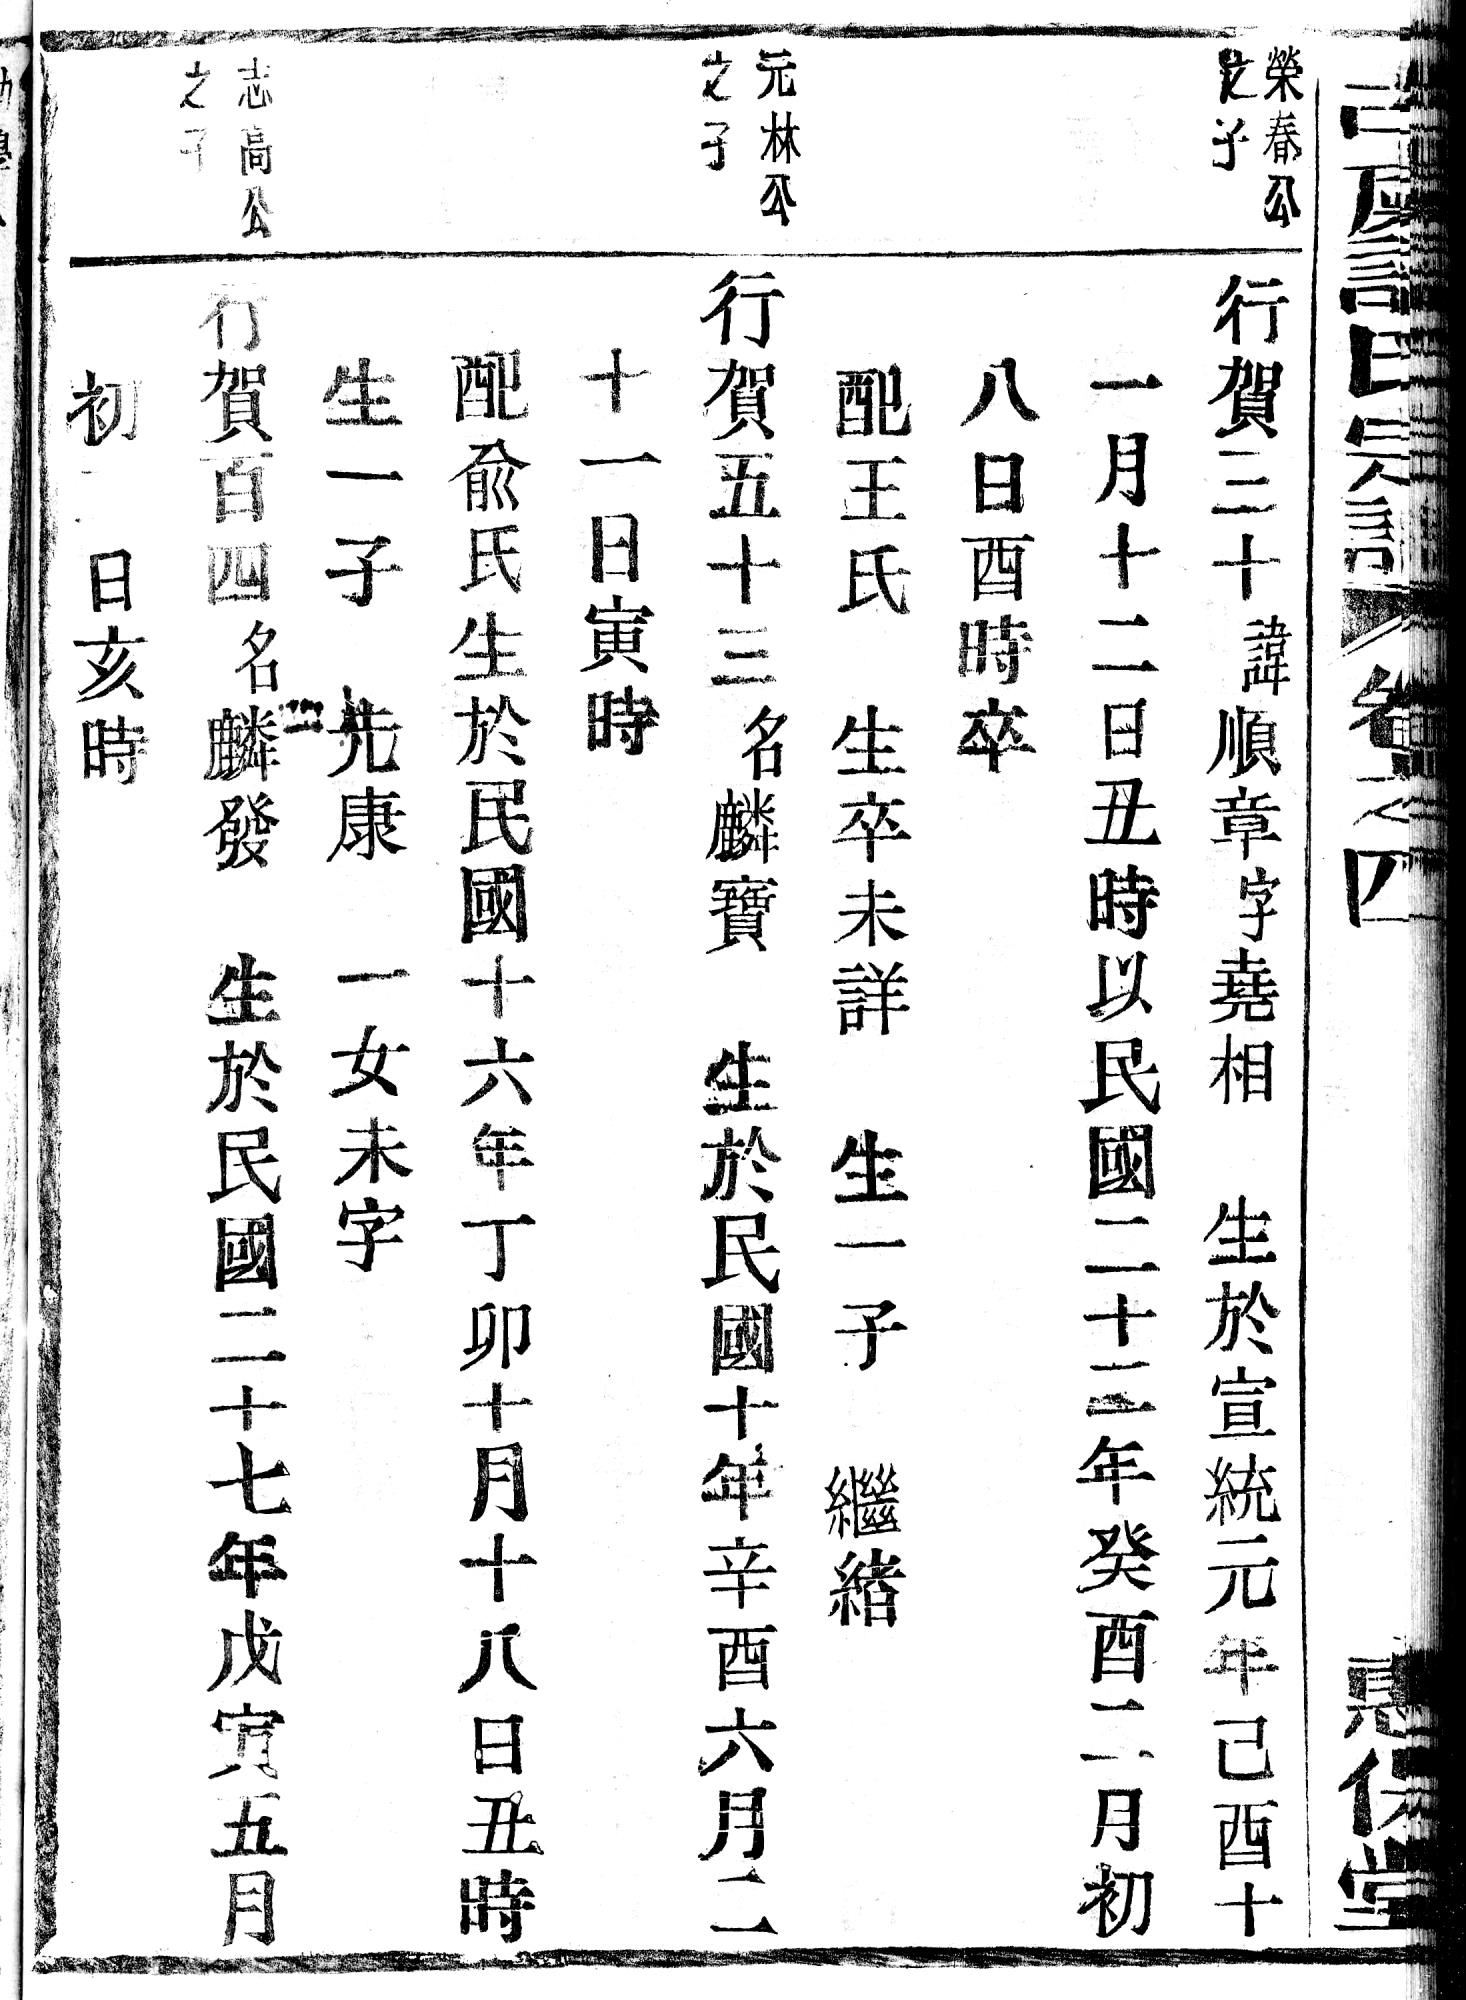 氏宗譜 卷之四 惠保堂
榮春公
之子
行賀三十諱順章字堯相 生於宣統元年己酉十
一月十二日丑時以民國二十二年癸酉二月初
八日酉時卒
配王氏 生卒未詳 生一子 繼緒
元林公
之子
行賀五十三名麟寶 生於民國十年辛酉六月二
十一日寅時
配俞氏生於民國十六年丁卯十月十八日丑時
生一子 光康 一女未字
志高公
之子
行賀百四名麟發 生於民國二十七年戊寅五月
初 日亥時